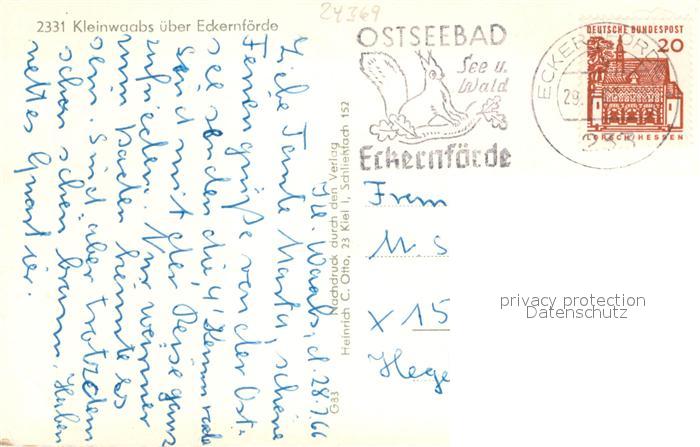 24369
2331 Kleinwaabs über Eckernförde
OSTSEEBAD
See u.
Wald
Eckernförde
ECKERNFÖRDE
29.
DEUTSCHE BUNDESPOST
20
LORSCH/HESSEN
Kl. Waabs, d. 28.7.66
Liebe Tante Martha, schöne
Feriengrüße von der Ost-
see senden die
Sind mit der Reise ganz
zufrieden. Nur wärmer
zum Baden könnte es
sein. Sind aber trotzdem
schon schön braun. Haben
nettes Quartier.
Nachdruck durch den Verlag
Heinrich C. Otto, 23 Kiel 1, Schließfach 152
G83
M. S
X 15
Hege
privacy protection
Datenschutz